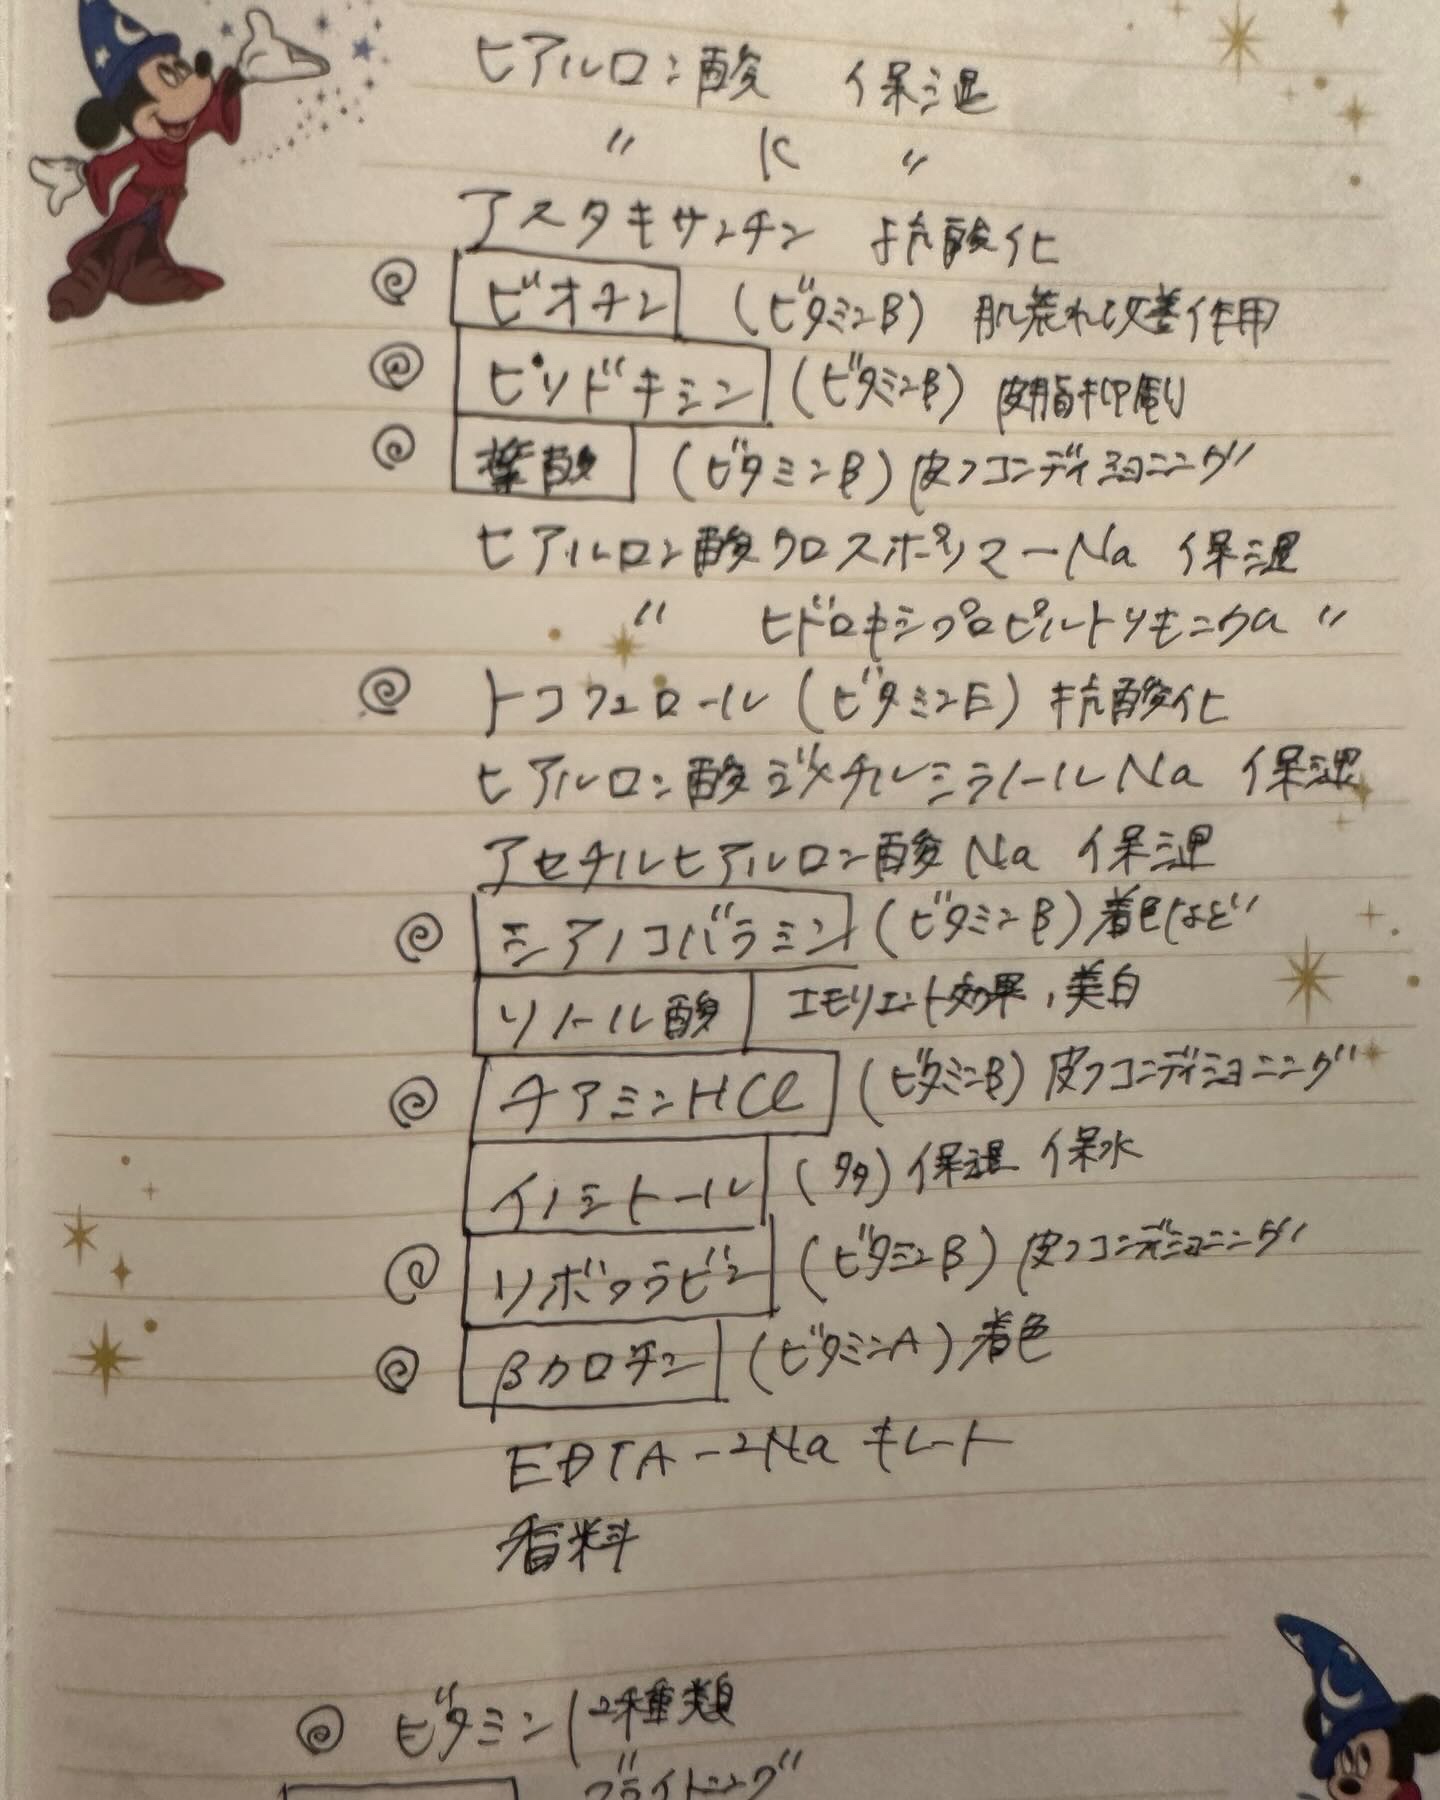 ヒアルロン酸 保湿
〃 K 〃
アスタキサンチン 抗酸化
ビオチン (ビタミンB) 肌荒れ改善作用
ピリドキシン (ビタミンB) 皮脂抑制
葉酸 (ビタミンB) 皮フコンディショニング
ヒアルロン酸クロスポリマーNa 保湿
〃 ヒドロキシプロピルトリモニウム 〃
トコフェロール (ビタミンE) 抗酸化
ヒアルロン酸ジメチルシラノールNa 保湿
アセチルヒアルロン酸Na 保湿
シアノコバラミン (ビタミンB) 着色など
リノール酸 エモリエント効果、美白
チアミンHCl (ビタミンB) 皮フコンディショニング
イノシトール 保湿 保水
リボフラビン (ビタミンB) 皮フコンディショニング
βカロチン (ビタミンA) 着色
EDTA-2Na キレート
香料
ビタミン12種類
ブライトニング